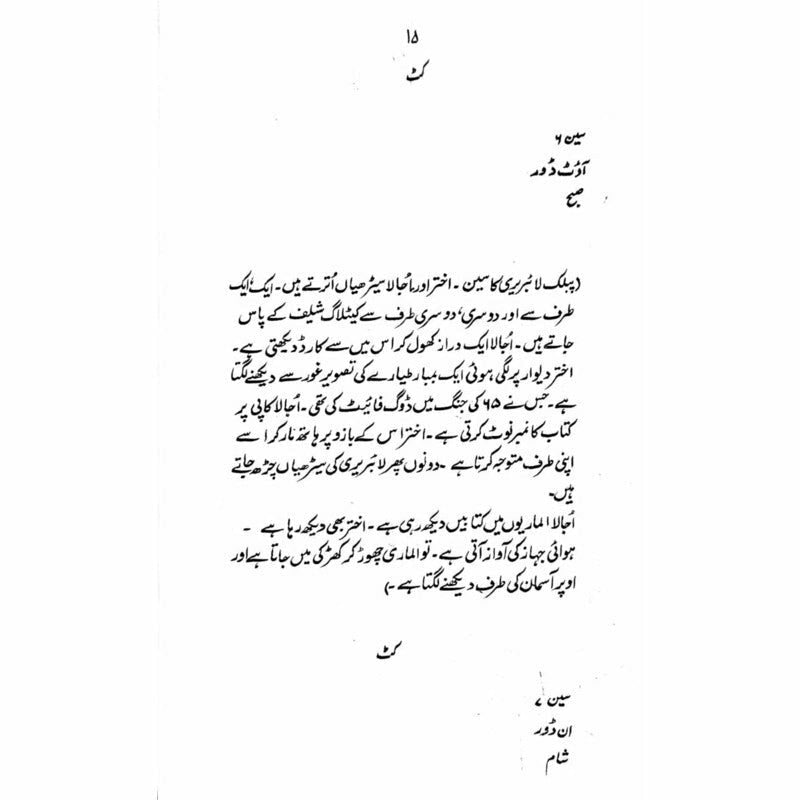 ۱۵
کٹ
سین ۶
آؤٹ ڈور
صبح
(پبلک لائبریری کا سین ۔ اختر اور اُجالا سیڑھیاں اُترتے ہیں۔ ایک، ایک
طرف سے اور دوسری، دوسری طرف سے کیٹلاگ شیلف کے پاس
جاتے ہیں۔ اُجالا ایک دراز کھول کر اس میں سے کارڈ دیکھتی ہے۔
اختر دیوار پر لگی ہوئی ایک بمبار طیارے کی تصویر غور سے دیکھنے لگتا
ہے۔ جس نے ۶۵ کی جنگ میں ڈوگ فائیٹ کی تھی ۔ اُجالا کاپی پر
کتاب کا نمبر نوٹ کرتی ہے ۔ اختر اس کے بازو پر ہاتھ مار کر اسے
اپنی طرف متوجہ کرتا ہے ۔ دونوں پھر لائبریری کی سیڑھیاں چڑھ جاتے
ہیں۔
اُجالا الماریوں میں کتابیں دیکھ رہی ہے ۔ اختر بھی دیکھ رہا ہے ۔
ہوائی جہاز کی آواز آتی ہے۔ تو الماری چھوڑ کر کھڑکی میں جاتا ہے اور
اوپر آسمان کی طرف دیکھنے لگتا ہے ۔)
کٹ
سین ۷
ان ڈور
شام